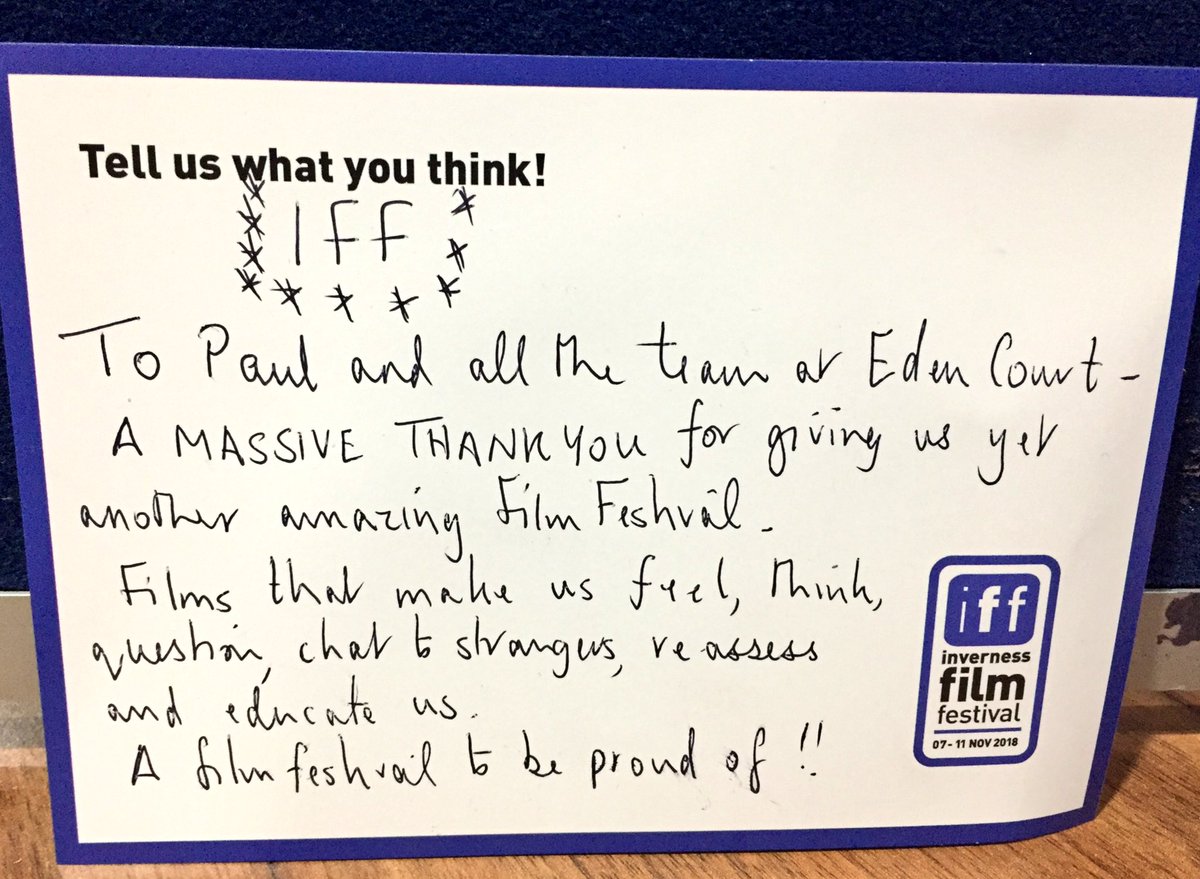 Tell us what you think!
IFF
To Paul and all the team at Eden Court -
A MASSIVE THANK YOU for giving us yet
another amazing Film Festival.
Films that make us feel, think,
question, chat to strangers, re assess
and educate us.
A film festival to be proud of !!
iff
inverness
film
festival
07-11 NOV 2018